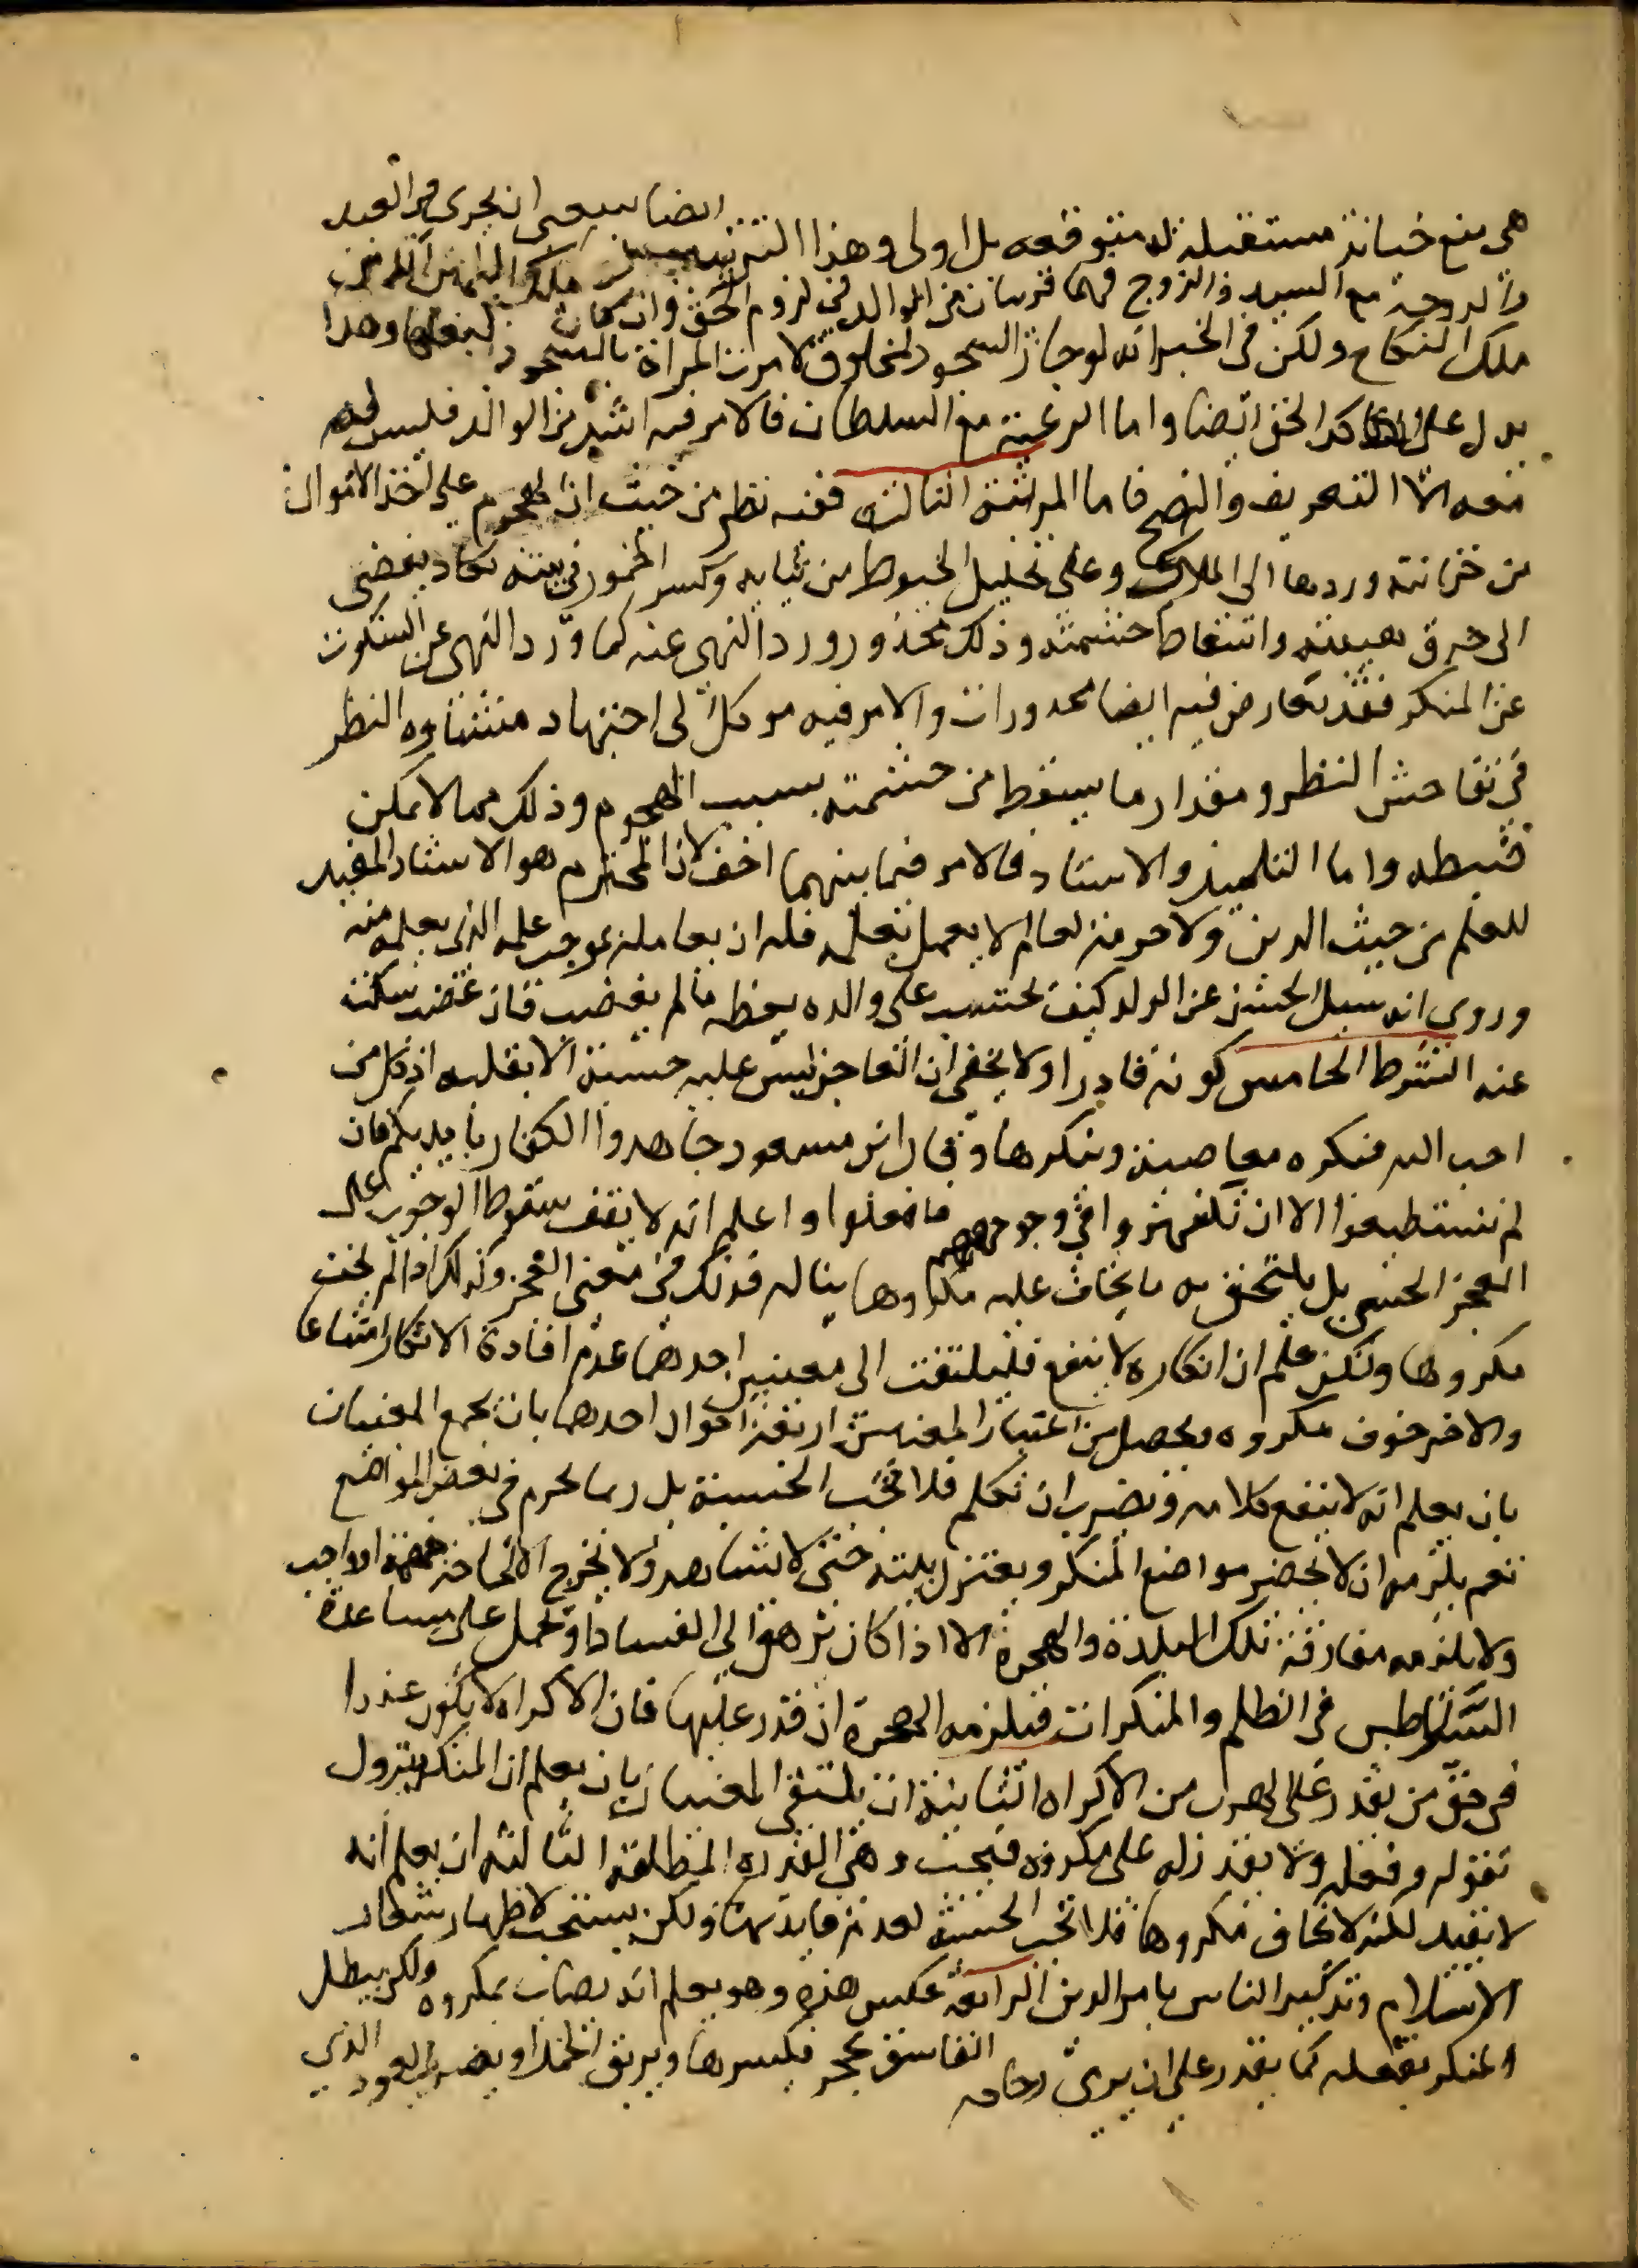 هى منع خيانة مستقبلة متوقعه بل اولى وهذا الترتيب ايضا ينبغى ان يجرى فى العبد
والزوجة مع السيد والزوج فهما قريبان من الوالد فى لزوم الحق وان كان ملك اليمين آكد من
ملك النكاح ولكن فى الخبر انه لو جاز السجود لمخلوق لامرت المراة بالسجود لبعلها وهذا
يدل على تاكد الحق ايضا واما الرعية مع السلطان فالامر فيه اشد من الوالد فليس لهم
معه الا التعريف والنصح فاما المرتبة الثالثه ففيه نظر من حيث ان الهجوم على اخذ الاموال
من خزانته وردها الى الملاك وعلى تحليل الخيوط من ثيابه وكسر الخمور فى بيته تكاد يفضى
الى خرق هيبته واسقاط حشمته وذلك محذور ورد النهى عنه كما ورد النهى عن السكوت
عن المنكر فقد تعارض فيه ايضا محدوران والامر فيه موكل الى اجتهاد منشاوه النظر
فى تفاحش النظر ومقدار ما يسقط من حشمته بسبب الهجوم وذلك مما لا يمكن
ضبطه واما التلميذ والاستاد فالامر فيما بينهما اخف لان المحترم هو الاستاد المفيد
للعلم من حيث الدين ولا حرمة لعالم لا يعمل بعلمه فله ان يعامله بموجب علمه الذى يعلمه منه
وروى انه سيل الحسن عن الولد كيف يحتسب على والده يعظه مالم يغضب فان غضب سكت
عنه الشرط الخامس كونه قادرا ولا يخفى ان العاجز ليس عليه حسبة الا بقلبه اذ كل من
احب الله فيكره معاصيه وينكرها وقال ابن مسعود جاهدوا الكفار بايديكم فان
لم تستطيعوا الا ان تكفهروا فى وجوههم فافعلوا واعلم انه لا يقف سقوط الوجوب على
العجز الحسى بل يلتحق به ما يخاف عليه مكروها يناله فذلك فى معنى العجز وكذلك اذا لم يخف
مكروها ولكن علم ان انكاره لا ينفع فليلتفت الى معنيين احدهما عدم افادة الانكار امتناعا
والاخر خوف مكروه ويحصل من اعتبار المعنيين اربعة احوال احدها بان يجمع المعنيان
بان يعلم انه لا ينفع كلامه ويضرب ان تكلم فلا تجب الحسبة بل ربما تحرم فى بعض المواضع
نعم يلزمه ان لا يحضر مواضع المنكر ويعتزل بيته حتى لا يشاهد ولا يخرج الا لحاجة مهمة او واجب
ولا يلزمه مفارقة تلك البلدة والهجرة الا اذا كان يرهق الى الفساد او يحمل على مساعدة
السلاطين فى الظلم والمنكرات فيلزمه الهجرة ان قدر عليها فان الاكراه لا يكون عذرا
فى حق من يقدر على الهرب من الاكراه الثانية ان ينتفى المعنيان بان يعلم ان المنكر يزول
بقوله وفعله ولا يقدر له على مكروه فيجب وهى القدره المطلقة الثالثه ان يعلم انه
لا يفيد لكنه لا يخاف مكروها فلا تجب الحسبة لعدم فايدتها ولكن يستحب لاظهار شعار
الاسلام وتذكير الناس بامر الدين الرابعة عكس هذه وهو يعلم انه يصاب بمكروه ولكن يبطل
المنكر بفعله كما يقدر على ان يرمى زجاجه الفاسق بحجر فيكسرها ويريق الخمر او يضرب العود الذى